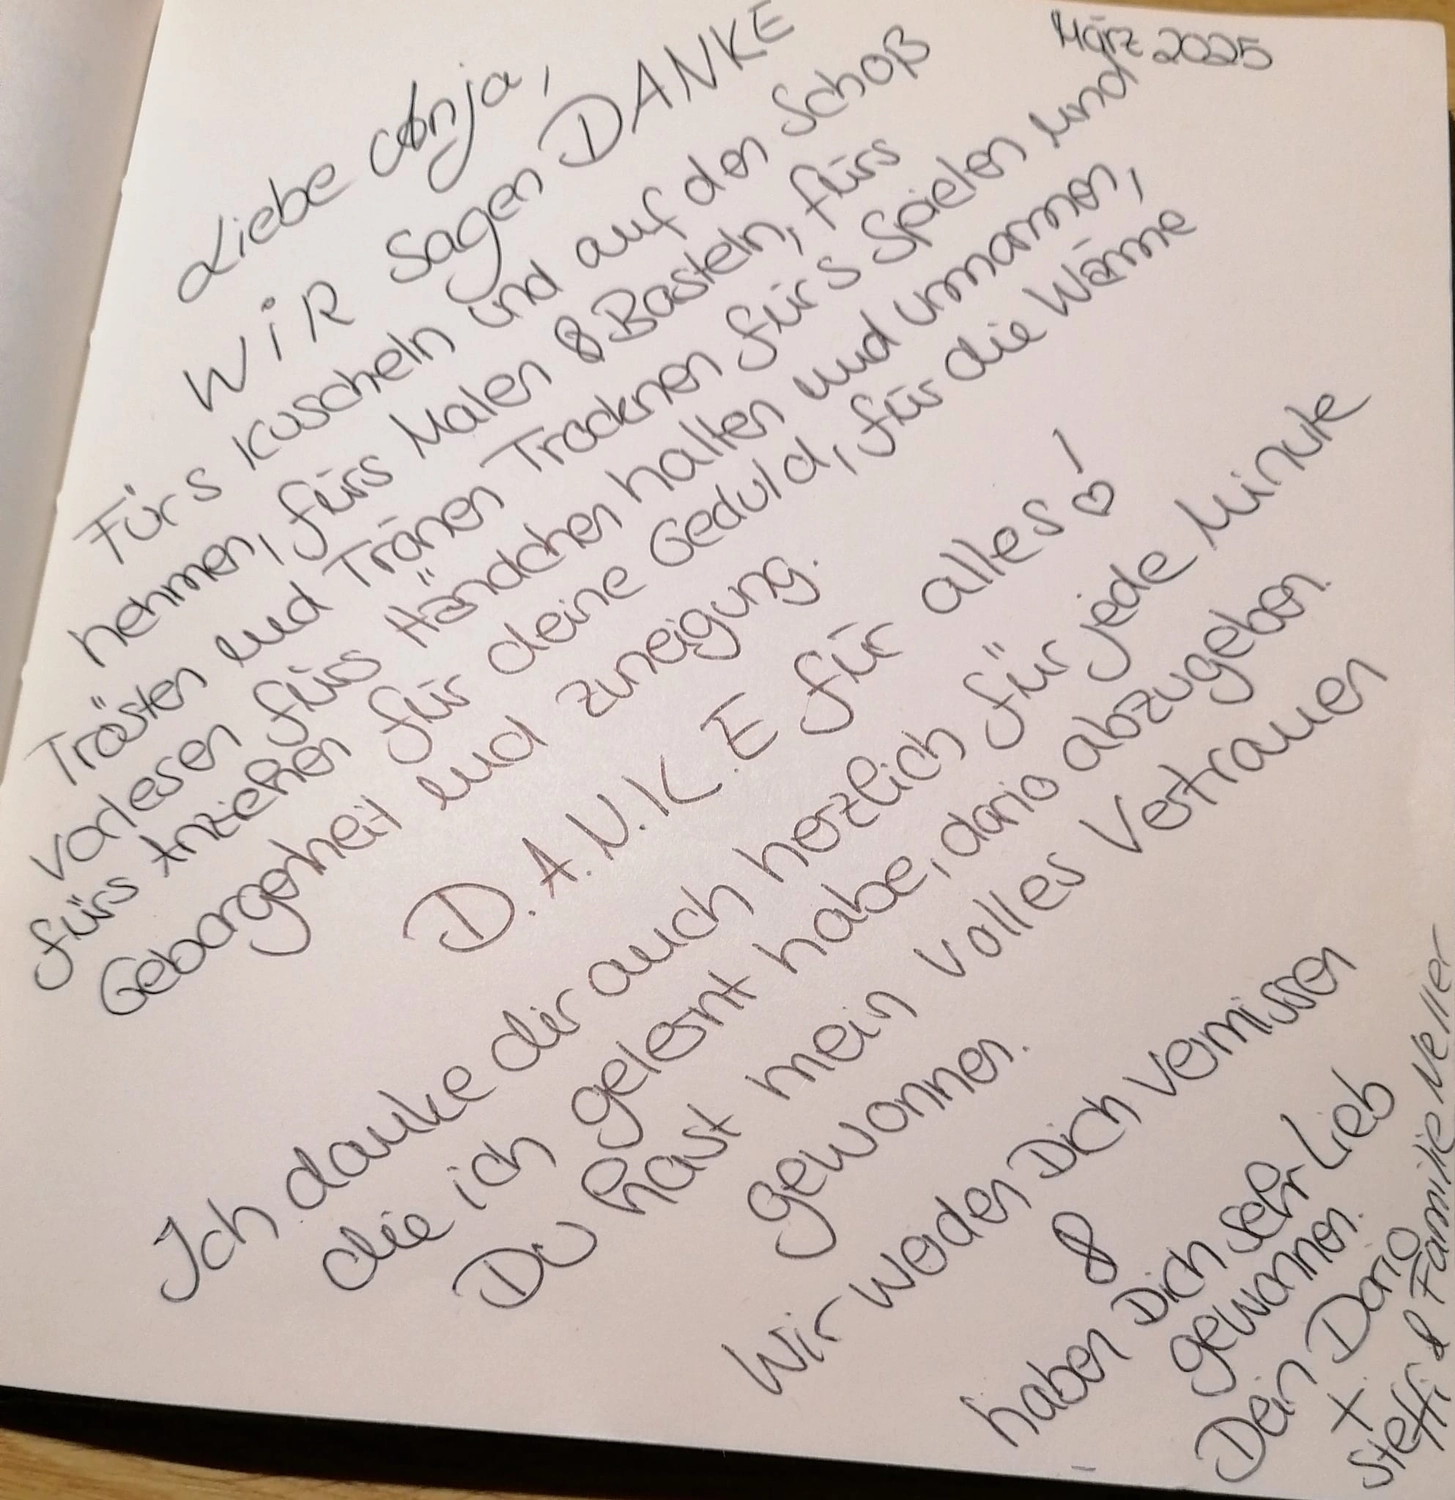 März 2025
Liebe Anja,
WiR sagen DANKE
Fürs Kuscheln und auf den Schoß
nehmen, fürs Malen & Basteln, fürs
Trösten und Tränen Trocknen fürs Spielen und
vorlesen fürs Händchen halten und umarmen,
fürs Anziehen für deine Geduld, für die Wärme
Geborgenheit und zuneigung.
D.A.N.K.E für alles!
Ich danke dir auch herzlich für jede Minute
die ich gelernt habe, dario abzugeben.
DU hast mein volles Vertrauen
gewonnen.
Wir werden Dich vermissen
&
haben Dich sehr Lieb
gewonnen.
Dein Dario
+
Steffi & Familie Neller